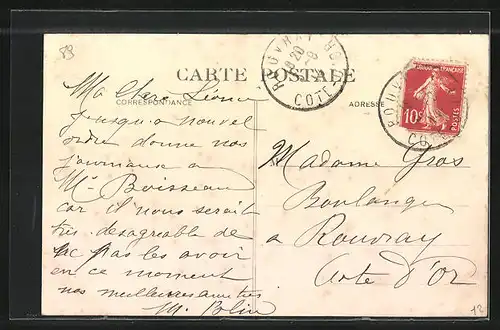 89
CARTE POSTALE
CORRESPONDANCE
ADRESSE
ROUVRAY
8 20
COTE
RÉPUBLIQUE FRANÇAISE
10c
POSTES
ROUV
CO
Ma Chere Léonie
Jusqu'a nouvel
ordre donne nos
journaux a
Mr Boisseau
car il nous serait
très désagreable de
ne pas les avoir
en ce moment
nos meilleures amitiés
M.
Madame Gros
Boulanger
a Rouvray
Cote d'Or
12